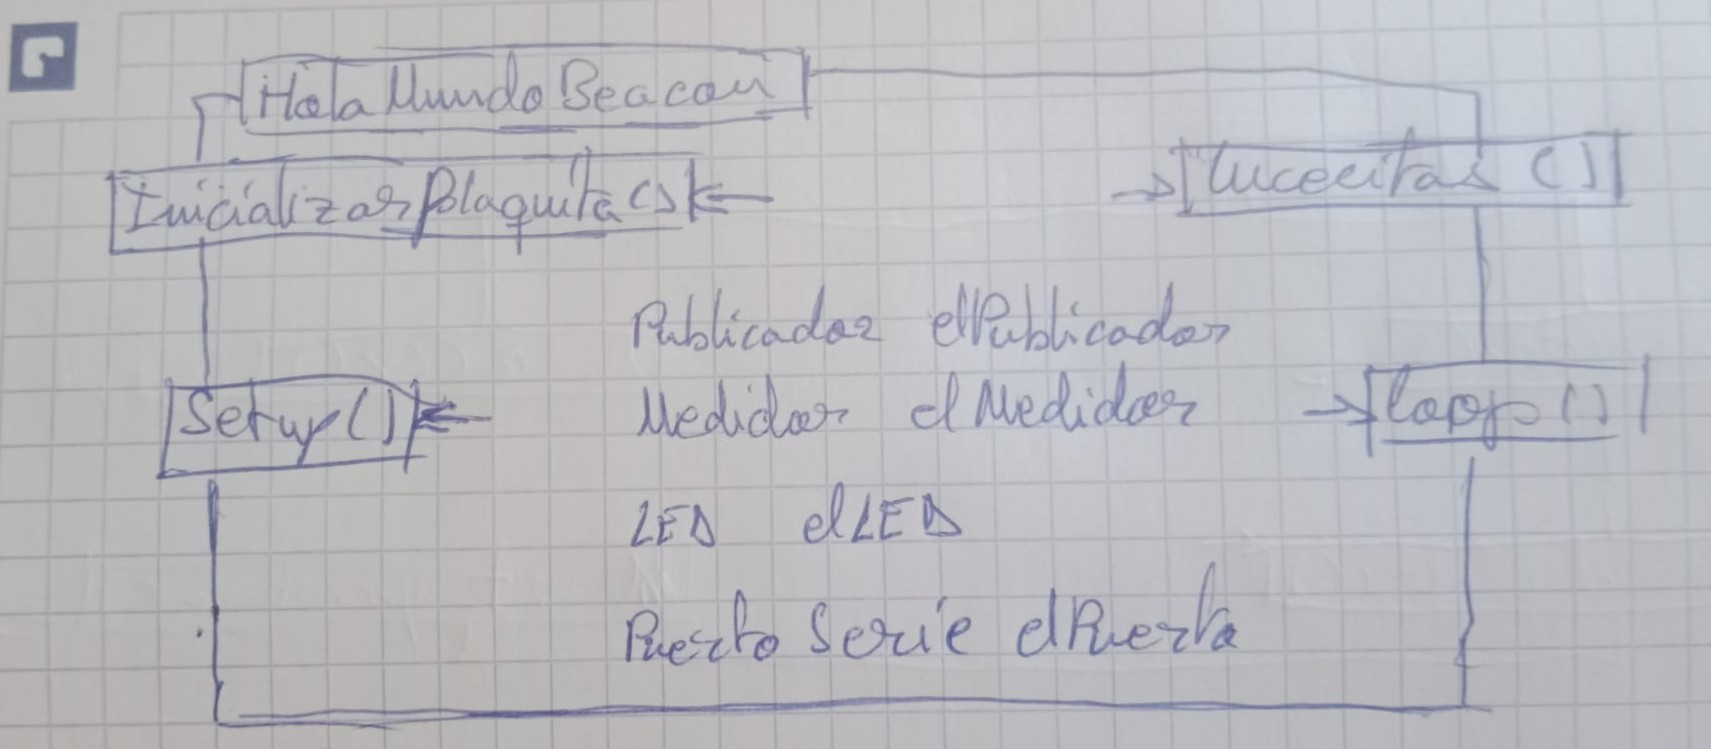 Hola Mundo Beacon
Inicializar Plaquita()
lucecitas ()
Publicador elPublicador
Setup()
Medidor el Medidor
loop()
LED elLED
Puerto Serie el Puerto